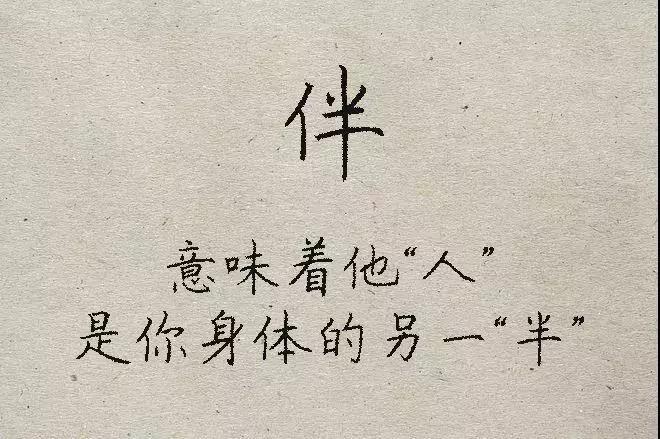 伴
意味着他“人”
是你身体的另一“半”